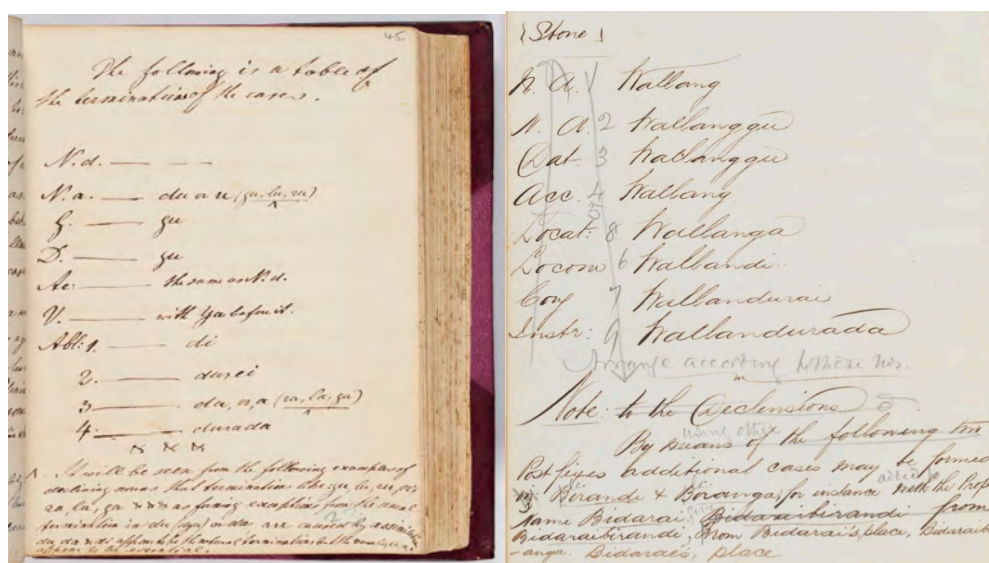 45.
The following is a table of
the terminations of the cases.
N. d. —— — —
N. a. —— du or u (gu, lu, ru)
G. —— gu
D. —— gu
Ac: —— the same as N. d.
V. —— with Ya before it.
Abl: 1. —— di
2. —— durei
3 —— da, or, a (ra, la, ga)
4. —— durada
It will be seen from the following examples of
declining nouns that terminations like gu, lu, ru,
ra, la, ga as forming exceptions from the usual
termination in du and da are caused by
du da & di appear to be the actual terminations but the
appear to be essential.
{Stone}
N. A. 1 Wallang
N. A. 2 Wallanggu
Dat. 3 Wallanggu
Acc. 4 Wallang
Locat: 8 Wallanga
Locom 6 Wallandi
Conj 7 Wallandurai
Instr: 9 Wallandurada
Arrange according to these nos.
Note: to the Declensions
using other
By means of the following
Postfixes additional cases may be formed
added to
Birandi & Biranga, for instance with the Prop
Name Bidarai, Bidaraibirandi from
Bidaraibirandi, from Bidarai's place, Bidaraib
-anga. Bidarai's, place